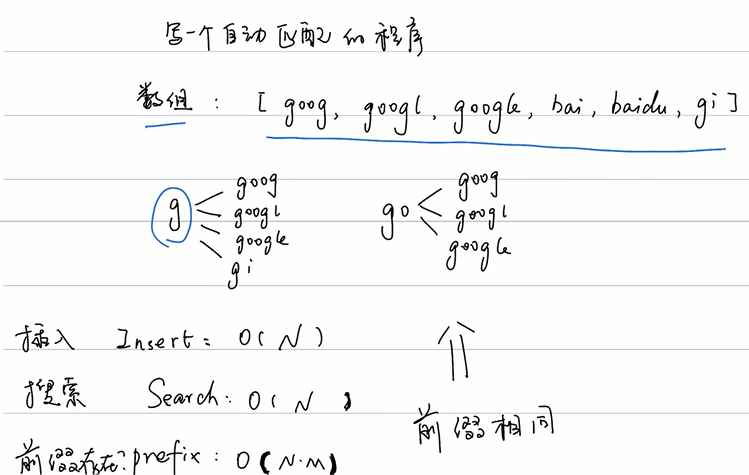 写一个自动匹配的程序
数组 : [ goog, googl, google, bai, baidu, gi ]
g goog googl google gi
go goog googl google
插入 Insert: O( N )
搜索 Search: O( N )
前缀相同
前缀存在? prefix : O( N·M )